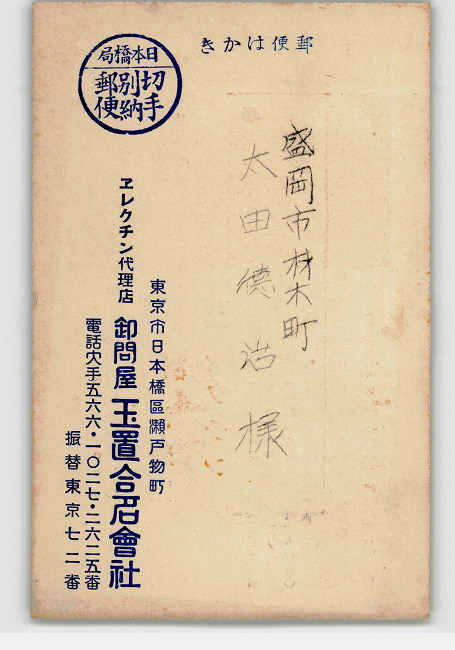 郵便はかき
盛岡市材木町
太田德治様
日本橋局
切手
別納
郵便
ヱレクチン代理店
東京市日本橋區瀨戸物町
卸問屋 玉置合名會社
電話大手五六六・一〇二七・二六二五番
振替東京七二番